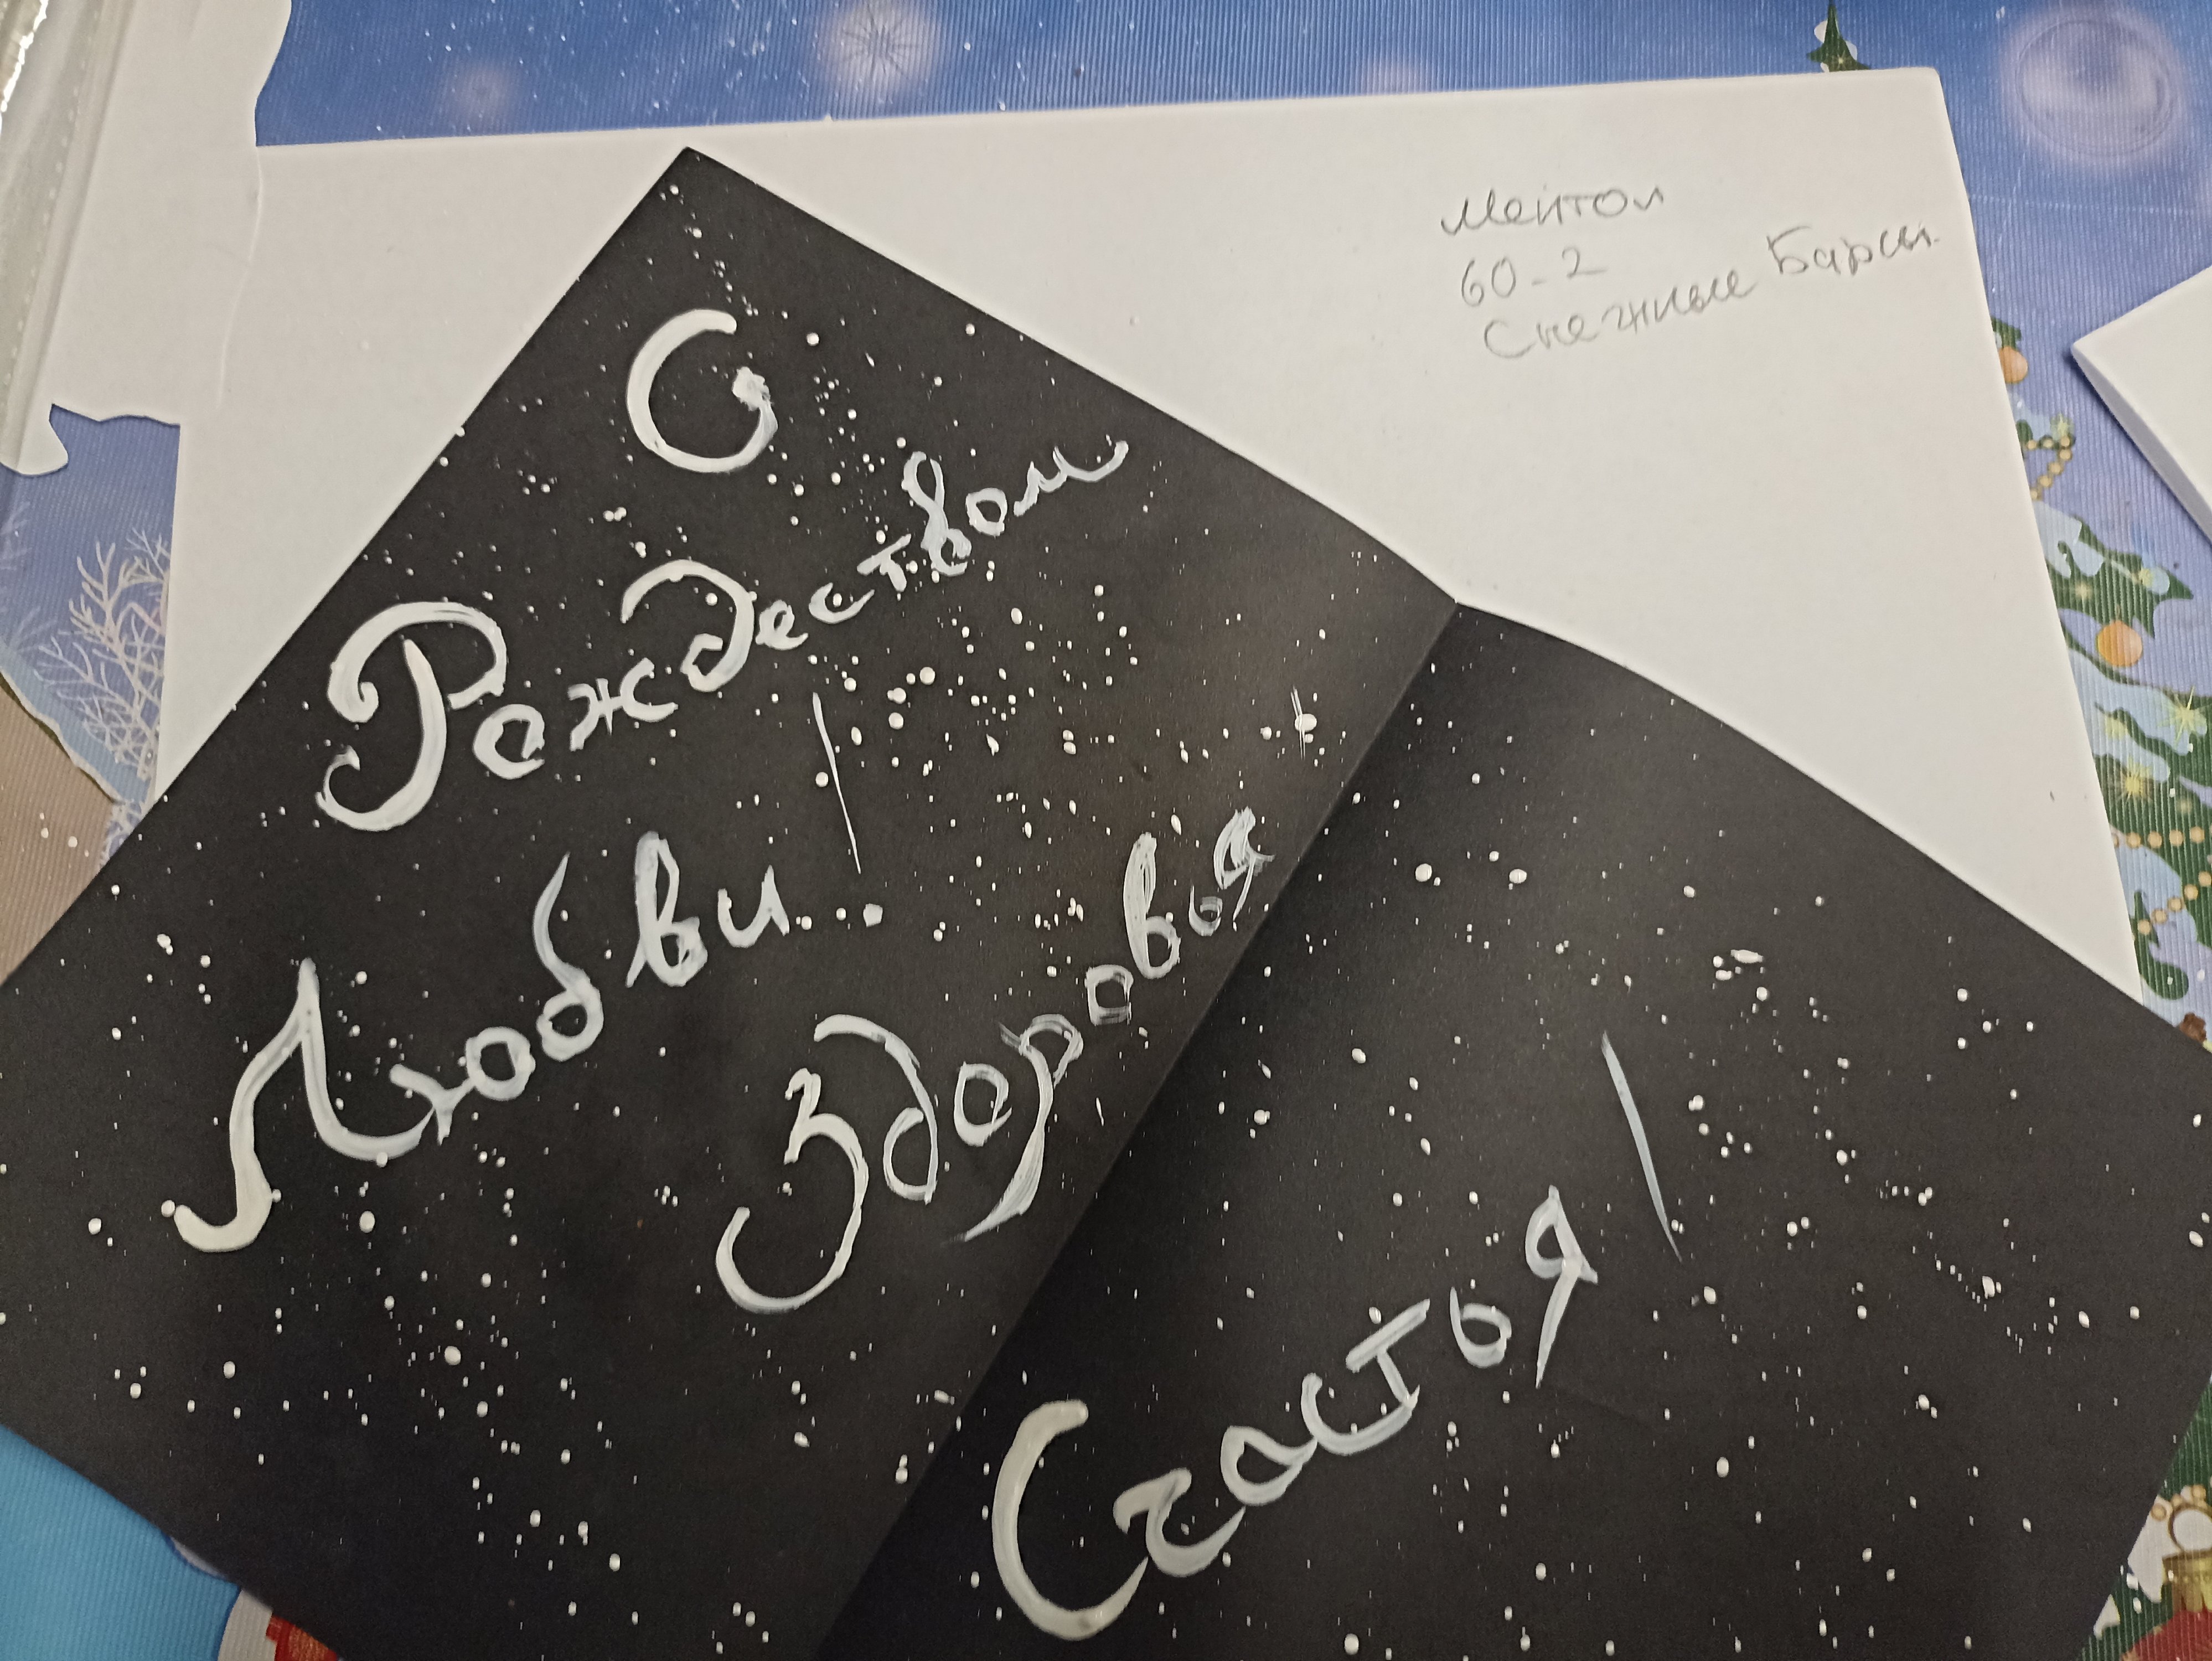 Ментол
60-2
Снежные Барсы
С
Рождеством
Любви!
Здоровья
Счастья!